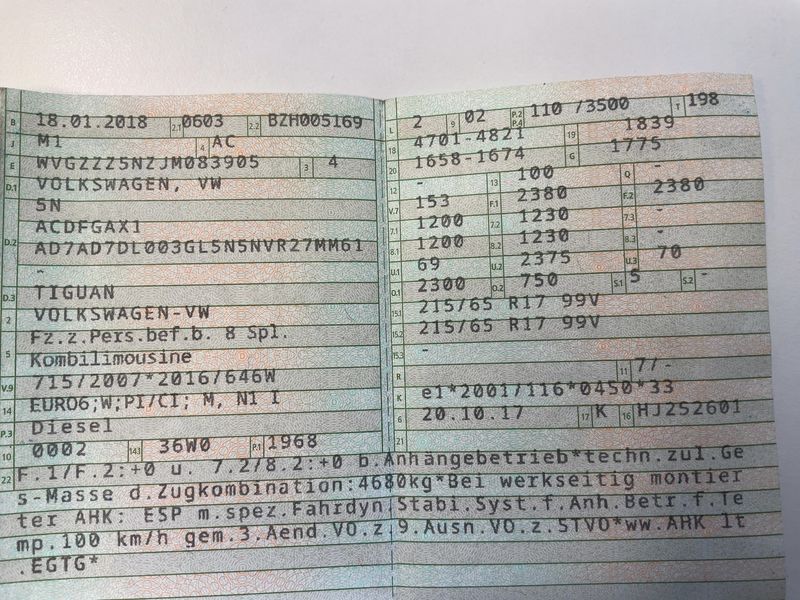 B 18.01.2018 2.1 0603 2.2 BZH005169
J M1 4 AC
E WVGZZZ5NZJM083905 3 4
D.1 VOLKSWAGEN, VW
5N
ACDFGAX1
D.2 AD7AD7DL003GL5N5NVR27MM61
-
D.3 TIGUAN
2 VOLKSWAGEN-VW
Fz.z.Pers.bef.b. 8 Spl.
5 Kombilimousine
V.9 715/2007*2016/646W
14 EURO6;W;PI/CI; M, N1 I
P.3 Diesel
10 0002 14.1 36W0 P.1 1968
L 2 9 02 P.2 P.4 110 /3500 T 198
18 4701-4821 19 1839
20 1658-1674 G 1775
12 - 13 100 Q -
V.7 153 F.1 2380 F.2 2380
7.1 1200 7.2 1230 7.3 -
8.1 1200 8.2 1230 8.3 -
U.1 69 U.2 2375 U.3 70
O.1 2300 O.2 750 S.1 5 S.2 -
15.1 215/65 R17 99V
15.2 215/65 R17 99V
15.3 -
R 11 7/-
K e1*2001/116*0450*33
6 20.10.17 17 K 16 HJ252601
21
22 F.1/F.2:+0 u. 7.2/8.2:+0 b.Anhängebetrieb*techn.zul.Ge
s-Masse d.Zugkombination:4680kg*Bei werkseitig montier
ter AHK: ESP m.spez.Fahrdyn.Stabi.Syst.f.Anh.Betr.f.Te
mp.100 km/h gem.3.Aend.VO.z.9.Ausn.VO.z.STVO*ww.AHK lt
.EGTG*